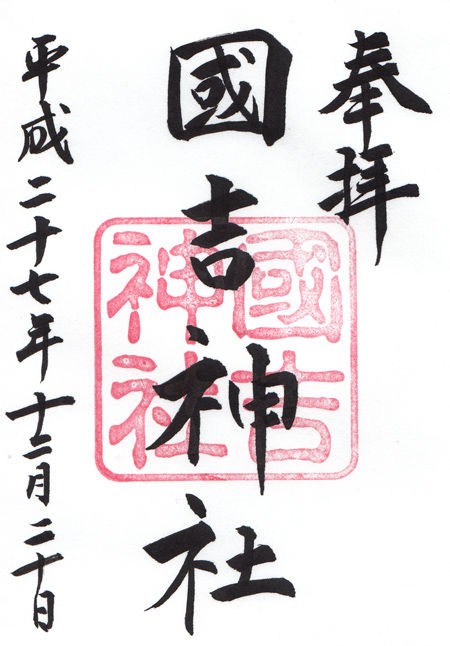 奉拝
國吉神社
國吉神社
平成二十七年十二月二十日